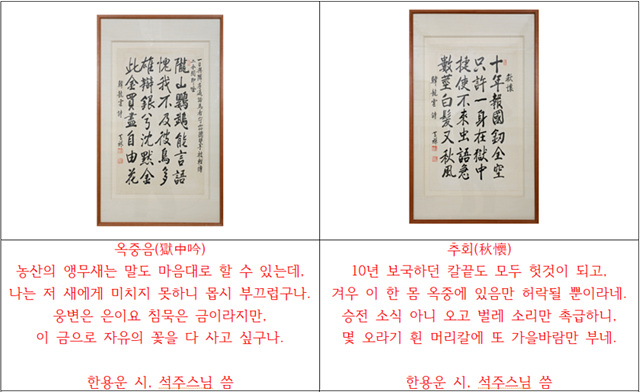 隴山鸚鵡能言語
愧我不及彼鳥多
雄辯銀兮沈默金
此金買盡自由花
韓龍雲 詩
秋懷
十年報國釰全空
只許一身在獄中
捷使不來虫語急
數莖白髮又秋風
韓龍雲 詩
옥중음(獄中吟)
농산의 앵무새는 말도 마음대로 할 수 있는데,
나는 저 새에게 미치지 못하니 몹시 부끄럽구나.
웅변은 은이요 침묵은 금이라지만,
이 금으로 자유의 꽃을 다 사고 싶구나.
한용운 시, 석주스님 씀
추회(秋懷)
10년 보국하던 칼끝도 모두 헛것이 되고,
겨우 이 한 몸 옥중에 있음만 허락될 뿐이라네.
승전 소식 아니 오고 벌레 소리만 촉급하니,
몇 오라기 흰 머리칼에 또 가을바람만 부네.
한용운 시, 석주스님 씀